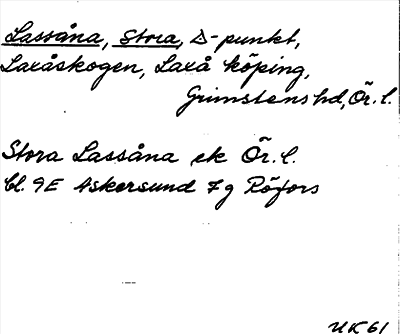 Lassåna, Stora, △-punkt,
Laxåskogen, Laxå köping,
Grimstens hd, Ör. l.
Stora Lassåna ek Ör. l.
bl. 9E Askersund 7g Röfors
UK 61